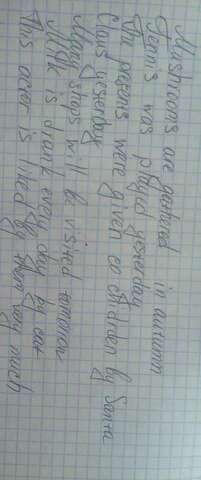 Mushrooms are gathered in autumn
Tennis was played yesterday
The presents were given to children by Santa
Claus yesterday
Many shops will be visited tomorrow
Milk is drank every day by cat
This actor is liked by them very much